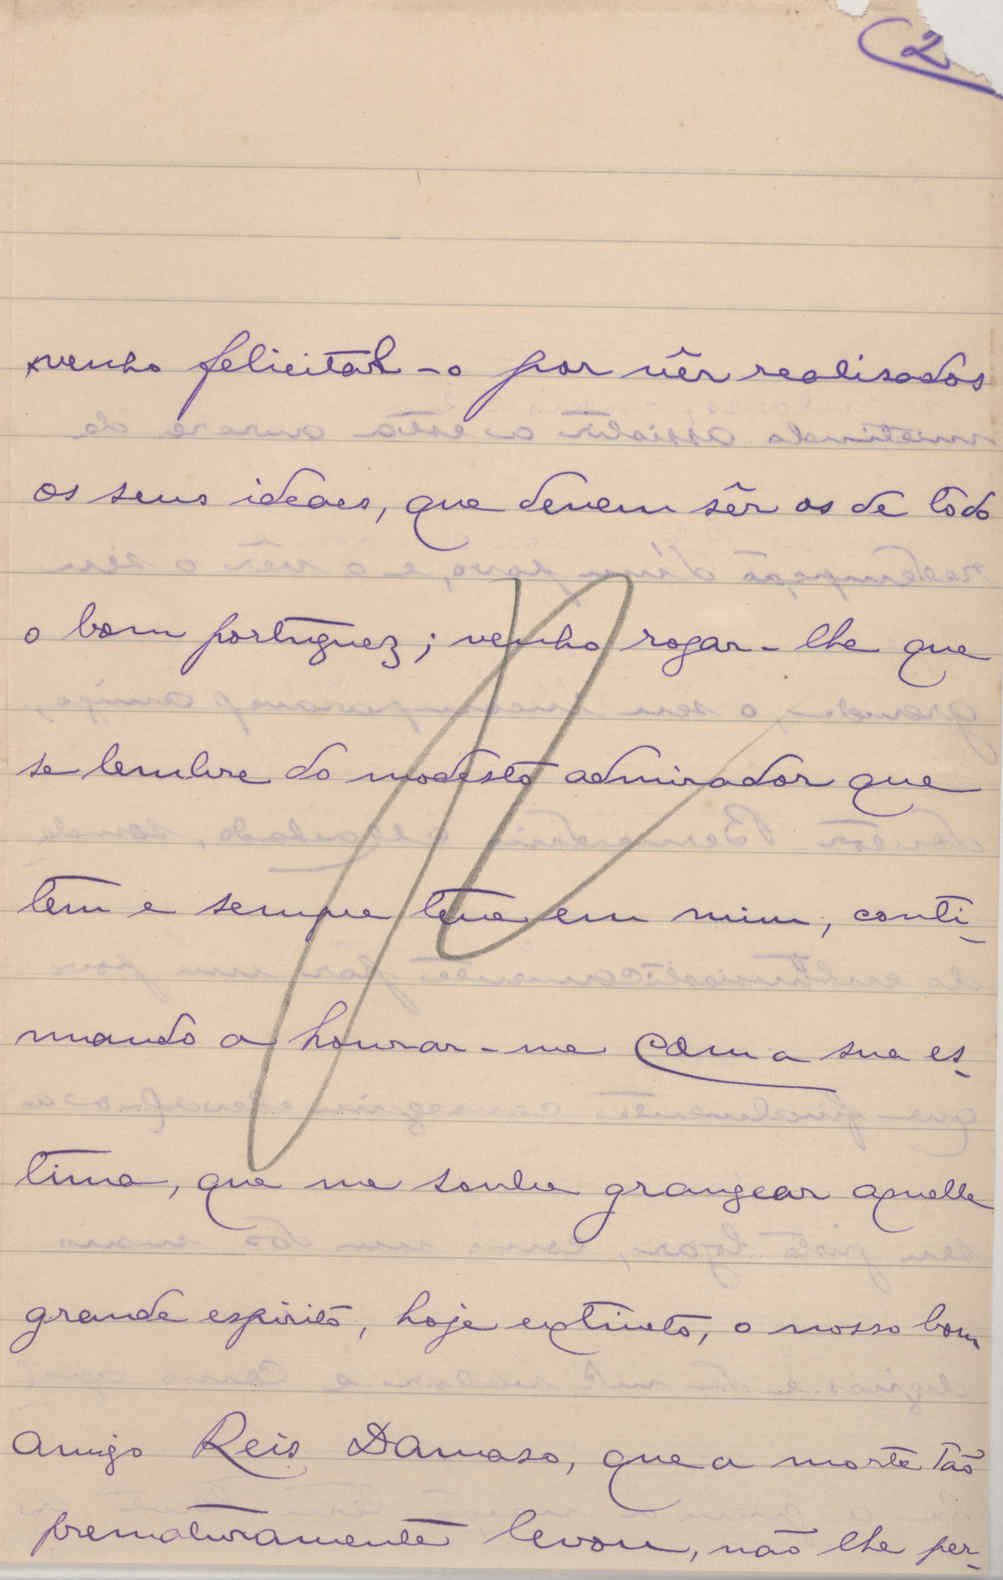 2
venho felicital-o por vêr realisados
os seus ideaes, que devem sêr os de todo
o bom portuguez; venho rogar-lhe que
se lembre do modesto admirador que
tem e sempre teve em mim, conti-
nuando a honrar-me com a sua es-
tima, que me soube grangear aquelle
grande espirito, hoje extincto, o nosso bom
amigo Reis Damaso, que a morte tão
prematuramente levou, não lhe per-